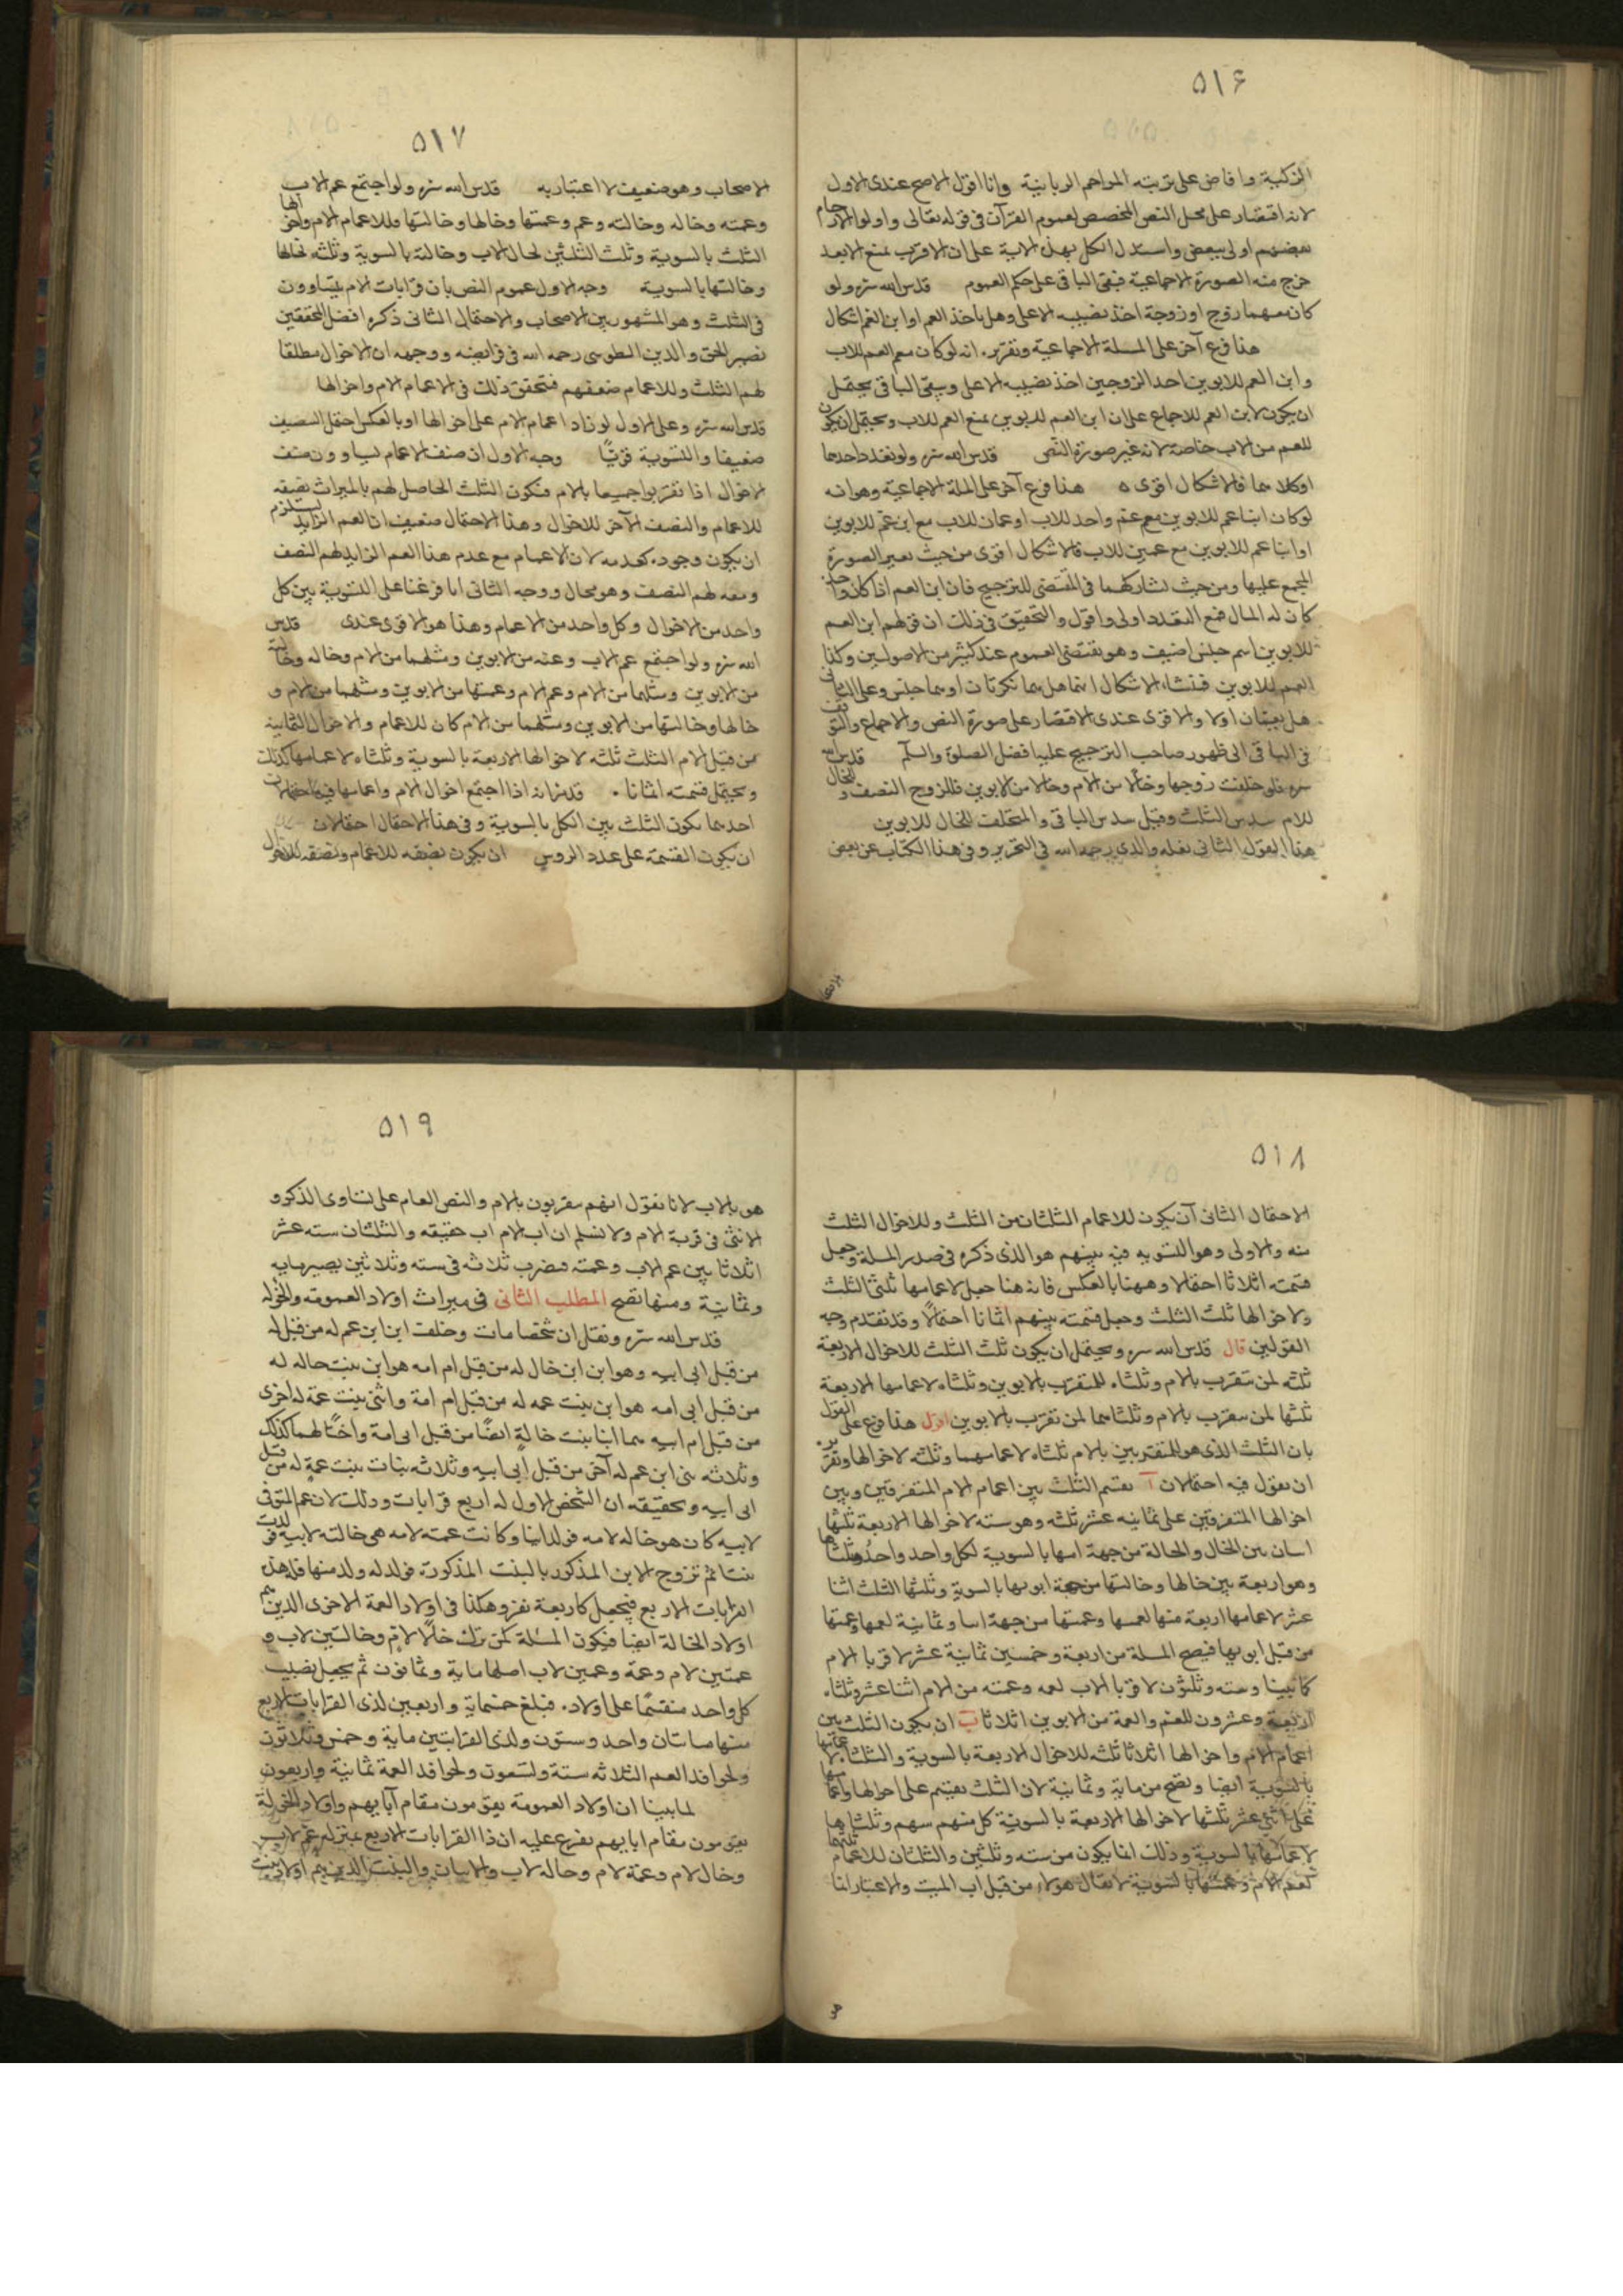 ٥١٦
الزكية وافاض على تربته المراحم الربانية وانا اقول الاصح عندى الاول
لانه اقتصار على محل النص المخصص لعموم القرآن فى قوله تعالى واولوا الارحام
بعضهم اولى ببعض واستدل الكل بهذه الاية على ان الاقرب يمنع الابعد
خرج منه الصورة الاجماعية فبقى الباقى على حكم العموم قدس الله سره ولو
كان معهما زوج او زوجة اخذ نصيبه الاعلى وهل ياخذ العم او ابن العم اشكال
هذا فرع آخر على المسلة الاجماعية وتقريره انه لو كان مع العم للاب
وابن العم للابوين احد الزوجين اخذ نصيبه الاعلى ويبقى الباقى يحتمل
ان يكون لابن العم للاجماع على ان ابن العم للابوين يمنع العم للاب ويحتمل ان يكون
للعم من الاب خاصة لانه غير صورة النص قدس الله سره ولو تعدد احدهما
او كلاهما فالاشكال اقوى ه هذا فرع آخر على المسلة الاجماعية وهو انه
لو كان ابنا عم للابوين مع عم واحد للاب او عمان للاب مع ابن عم للابوين
او ابنا عم للابوين مع عمين للاب فالاشكال اقوى من حيث تغير الصورة
المجمع عليها ومن حيث تشاركهما فى المقتضى للترجيح فان ابن العم اذا كان واحدا
كان له المال فمع التعدد اولى واقول والتحقيق فى ذلك ان قولهم ابن العم
للابوين اسم جنس اضيف وهو يقتضى العموم عند كثير من الاصوليين وكذا
العم للابوين فمنشاء الاشكال انهما هل هما نكرتان او هما جنس وعلى الثانى
هل يعمان اولا والاقوى عندى الاقتصار على صورة النص والاجماع والتوقف
فى الباقى الى ظهور صاحب الترجيح عليه افضل الصلوة والسلم قدس الله
سره فلو خلفت زوجها وخالا من الام وخالا من الابوين فللزوج النصف وللخال
للام سدس الثلث وقيل سدس الباقى والمتخلف للخال للابوين
هذا القول الثانى نقله والدى رحمه الله فى التحرير وفى هذا الكتاب عن بعض
٥١٧
الاصحاب وهو ضعيف لا اعتبار به قدس الله سره ولو اجتمع عم الاب
وعمته وخاله وخالته وعم وعمتها وخالها وخالتها فللاعمام الام واخوالها
الثلث بالسوية وثلث الثلثين لخال الاب وخالته بالسوية وثلثه لخالها
وخالتها بالسوية وجه الاول عموم النص بان قرابات الام يتساوون
فى الثلث وهو المشهور بين الاصحاب والاحتمال الثانى ذكره افضل المحققين
نصير الحق والدين الطوسى رحمه الله فى فرايضه ووجهه ان الاخوال مطلقا
لهم الثلث وللاعمام ضعفهم فتحقق ذلك فى الاعمام الام واخوالها
قدس الله سره وعلى الاول لو زاد اعمام الام على اخوالها او بالعكس احتمل التنصيف
ضعيفا والتسوية قويًا وجه الاول ان صنف الاعمام يساوون صنف
الاخوال اذا تقربوا جميعا بالام فيكون الثلث الحاصل لهم بالميراث نصفه
للاعمام والنصف الآخر للاخوال وهذا الاحتمال ضعيف اذ العم الزايد يستلزم
ان يكون وجوده كعدمه لان الاعمام مع عدم هذا العم الزايد لهم النصف
ومعه لهم النصف وهو محال ووجه الثانى انا فرعنا على التسوية بين كل
واحد من الاخوال وكل واحد من الاعمام وهذا هو الاقوى عندى قدس
الله سره ولو اجتمع عم الاب وعمته من الابوين ومثلهما من الام وخاله وخالته
من الابوين ومثلهما من الام وعم الام وعمتها من الابوين ومثلهما من الام و
خالها وخالتها من الابوين ومثلهما من الام كان للاعمام والاخوال الثمانية
من قبل الام الثلث ثلثه لاخوالها الاربعة بالسوية وثلثاه لاعمامها كذلك
ويحتمل قسمته اثمانا . قدس انه اذا اجتمع اخوال الام واعمامها فيه احتمالات
احدهما يكون الثلث بين الكل بالسوية وفى هذا الاحتمال احتمالان
ان يكون القسمة على عدد الروس ان يكون نصفه للاعمام ونصفه للاخوال
٥١٨
الاحتمال الثانى آن يكون للاعمام الثلثان من الثلث وللاخوال الثلث
منه والاولى وهو التسويه فيه بينهم هو الذى ذكره فى صدر المسلة وجعل
قسمته اثلاثا احتمالا وههنا بالعكس فانه هنا جعل لاعمامها ثلثى الثلث
ولاخوالها ثلث الثلث وجعل قسمته بينهم اثمانا احتمالًا وقد تقدم وجه
القولين قال قدس الله سره ويحتمل ان يكون ثلث الثلث للاخوال الاربعة
ثلثه لمن يتقرب بالام وثلثاه للمتقرب بالابوين وثلثاه لاعمامها الاربعة
ثلثها لمن يتقرب بالام وثلثاهما لمن تقرب بالابوين اقول هذا فرع على القول
بان الثلث الذى هو للمتقربين بالام ثلثاه لاعمامهما وثلثه لاخوالها وتقريره
ان نقول فيه احتمالان آ يقسم الثلث بين اعمام الام المتفرقين وبين
اخوالها المتفرقين على ثمانيه عشر ثلثه وهو سته لاخوالها الاربعة ثلثها
اسان بين الخال والخالة من جهة امها بالسوية لكل واحد واحدُ وثلثاها
وهو اربعة بين خالها وخالتها من جهة ابويها بالسوية وثلثها الثلث اثنا
عشر لاعمامها اربعة منها لعمها وعمتها من جهة امها وثمانية لعمها وعمتها
من قبل ابويها فيصح المسلة من اربعة وخمسين ثمانية عشر لاقربا الام
كما بينا وسته وثلثون لاقربا الاب لعمه وعمته من الام اثنا عشر وثلثاه
اربعة وعشرون للعم والعمة من الابوين اثلاثا ب ان يكون الثلث بين
اعمام الام واخوالها اثلاثا ثلثه للاخوال الاربعة بالسوية والثلثان لاعمامها
بالسوية ايضا وتصح من ماية وثمانية لان الثلث يقسم على اخوالها واعمامها
على اثنى عشر ثلثها لاخوالها الاربعة بالسوية كل منهم سهم وثلثاها
لاعمامها بالسوية وذلك انما يكون من سته وثلثين والثلثان للاعمام ثلثها
لعم الام وعمتها بالسوية لا يقال هولاء من قبل اب الميت والاعتبار انما
هو
٥١٩
هو بالاب لانا نقول انهم يتقربون بالام والنص العام على تساوى الذكر و
الانثى فى قربة الام ولا نسلم ان اب الام اب حقيقه والثلثان سته عشر
اثلاثا بين عم الاب وعمته فيضرب ثلاثه فى سته وثلاثين يصير مايه
وثمانية ومنها تصح المطلب الثانى فى ميراث اولاد العمومه والخؤله
قدس الله سره ونقل ان شخصا مات وخلف ابن ابن عم له من قبل له
من قبل ابى ابيه وهو ابن ابن خال له من قبل ام امه هو ابن بنت خاله له
من قبل ابى امه هو ابن بنت عمه له من قبل ام امة وابنى بنت عمة له اخرى
من قبل ام ابيه هما ابنا بنت خالةٍ ايضًا من قبل ابى امة واختًا لهما كذلك
وثلاثه بنى ابن عم له آخر من قبل ابى ابيه وثلاثه بنات بنت عمةٍ له من قبل
ابى ابيه وتحقيقه ان الشخص الاول له اربع قرابات وذلك لان عم المتوفى
لابيه كان هو خاله لامه فولد ابنا وكانت عمته لامه هى خالته لابيه فولدت
بنتا ثم تزوج الابن المذكور بالبنت المذكورة فولد له ولد منها فله هذه
القرابات الاربع فيجعل كاربعة نفر وهكذا فى اولاد العمة الاخرى الذين هم
اولاد الخالة ايضا فيكون المسئلة كمن ترك خالًا لامٍ وخالتين لاب و
عمتين لام وعمة وعمين لاب اصلها ماية وثمانون ثم يجعل نصيب
كل واحد منقسمًا على اولاده فبلغ خمسماية واربعين لذى القرابات الاربع
منها ماىتان واحد وستون ولذى القرابتين ماية وخمس وثلاثون
ولحوافد العم الثلاثه ستة وتسعون ولحوافد العمة ثمانية واربعون
لما بينا ان اولاد العمومة يقومون مقام آبايهم واولاد الخؤلة
يقومون مقام ابايهم يفرع عليه ان ذا القرابات الاربع بمنزله عم لاب
وخال لام وعمة لام وخاله لاب والابنان والبنت الذين هم اولاد بنت